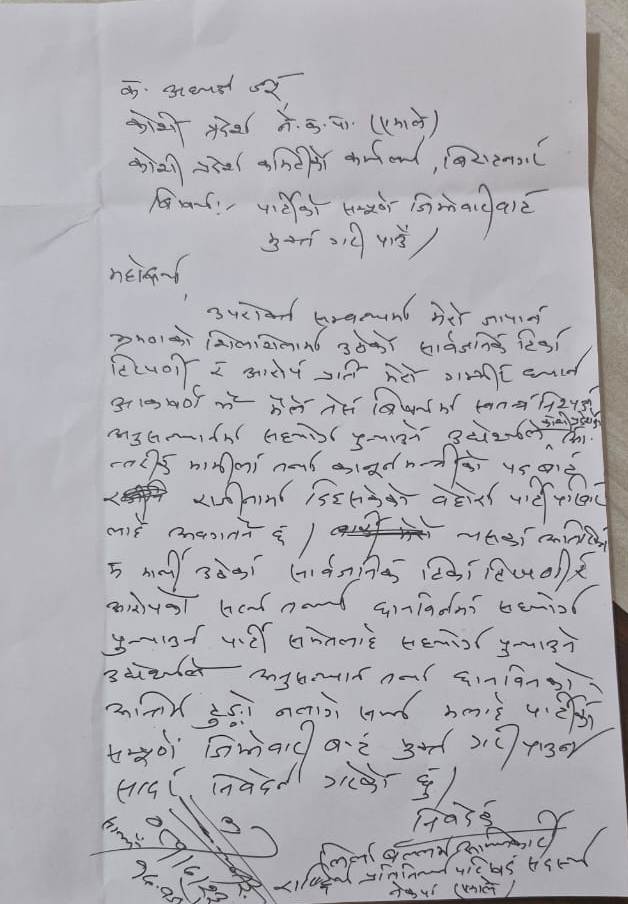 क. अध्यक्ष ज्यू,
कोशी प्रदेश ने.क.पा. (एमाले)
कोशी प्रदेश कमिटीको कार्यालय, बिराटनगर
बिषयः- पार्टीको सम्पूर्ण जिम्मेवारीबाट
मुक्त गरी पाउँ ।
महोदय,
उपरोक्त सम्बन्धमा मेरो जापान
भ्रमणको शिलशिलामा उठेको सार्वजनिक टिका
टिप्पणी र आरोप प्रति मेरो गम्भीर ध्यान
आकर्षण भै मैले तेस बिषयमा स्वतन्त्र निश्पक्ष
अनुसन्धानमा सहयोग पुर्‍याउने उद्देश्यले कोशी प्रदेशको आ-
न्तरीक मामीला तथा कानून मन्त्रीको पद बाट
राजीनामा दिइसकेको बेहोरा पार्टी
लाई अवगतनै छ । यसका अतिरिक्त
म माथी उठेका सार्वजनिक टिका टिप्पणी र
आरोपको सत्य तथ्य छानविनमा सहयोग
पुर्‍याउन पार्टी समेतलाई सहयोग पुर्‍याउने
उद्देश्यले अनुसन्धान तथा छानविनको
अन्तिम टुङ्गो नलागे सम्म मलाई पार्टीको
सम्पूर्ण जिम्मेवारी बाट मुक्त गरी पाउन
सादर निवेदन गरेको छु ।
निवेदक
लिला बल्लभ अधिकारी
राष्ट्रिय प्रतिनिधि परिषद सदस्य
नेकपा (एमाले)